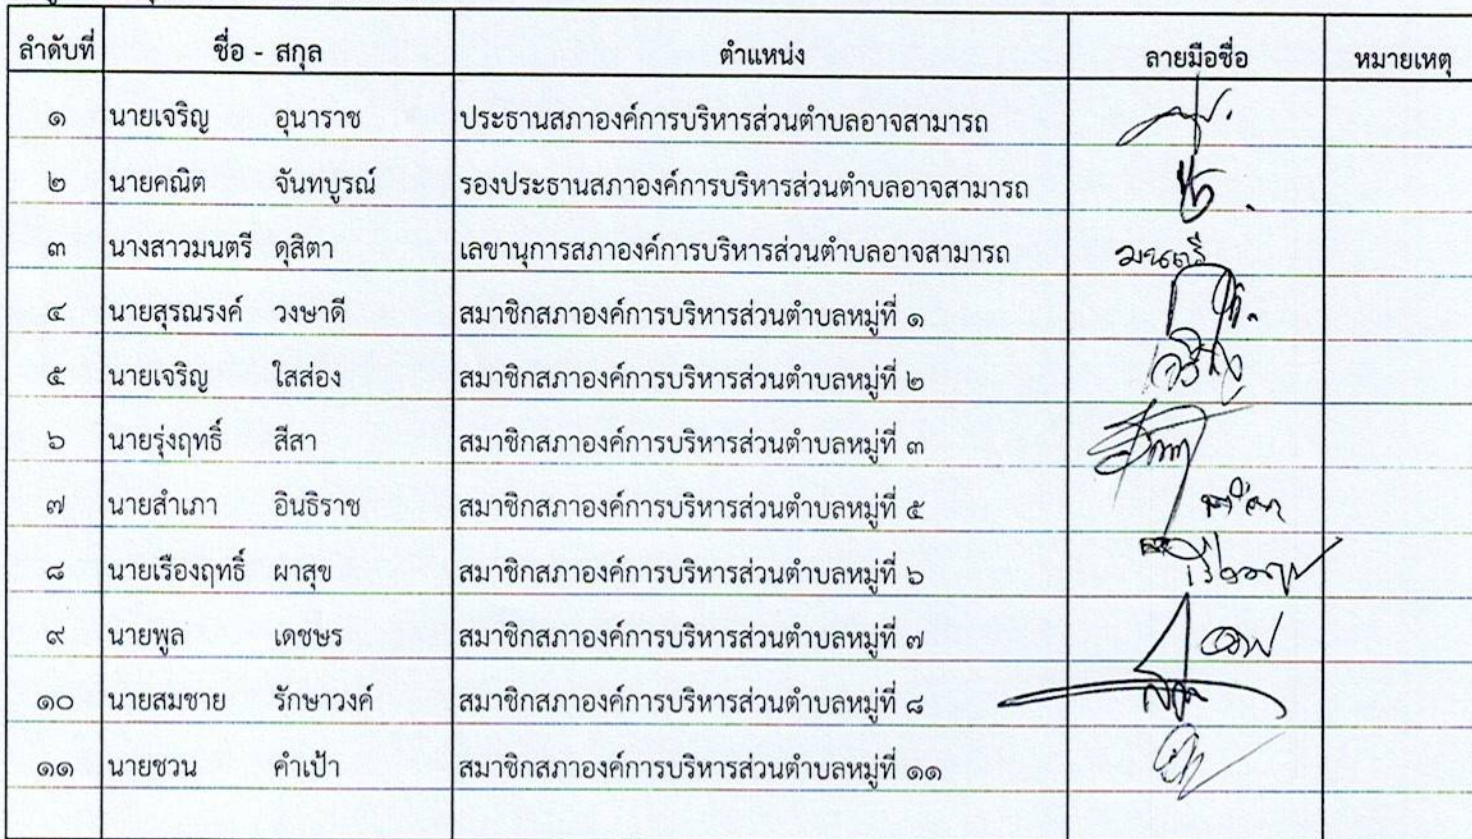 ลำดับที่ ชื่อ - สกุล ตำแหน่ง ลายมือชื่อ หมายเหตุ
๑ นายเจริญ อุนาราช ประธานสภาองค์การบริหารส่วนตำบลอาจสามารถ
๒ นายคณิต จันทบูรณ์ รองประธานสภาองค์การบริหารส่วนตำบลอาจสามารถ
๓ นางสาวมนตรี ดุสิตา เลขานุการสภาองค์การบริหารส่วนตำบลอาจสามารถ มนตรี
๔ นายสุรณรงค์ วงษาดี สมาชิกสภาองค์การบริหารส่วนตำบลหมู่ที่ ๑
๕ นายเจริญ ใสส่อง สมาชิกสภาองค์การบริหารส่วนตำบลหมู่ที่ ๒
๖ นายรุ่งฤทธิ์ สีสา สมาชิกสภาองค์การบริหารส่วนตำบลหมู่ที่ ๓
๗ นายสำเภา อินธิราช สมาชิกสภาองค์การบริหารส่วนตำบลหมู่ที่ ๕
๘ นายเรืองฤทธิ์ ผาสุข สมาชิกสภาองค์การบริหารส่วนตำบลหมู่ที่ ๖
๙ นายพูล เดชษร สมาชิกสภาองค์การบริหารส่วนตำบลหมู่ที่ ๗
๑๐ นายสมชาย รักษาวงค์ สมาชิกสภาองค์การบริหารส่วนตำบลหมู่ที่ ๘
๑๑ นายชวน คำเป้า สมาชิกสภาองค์การบริหารส่วนตำบลหมู่ที่ ๑๑